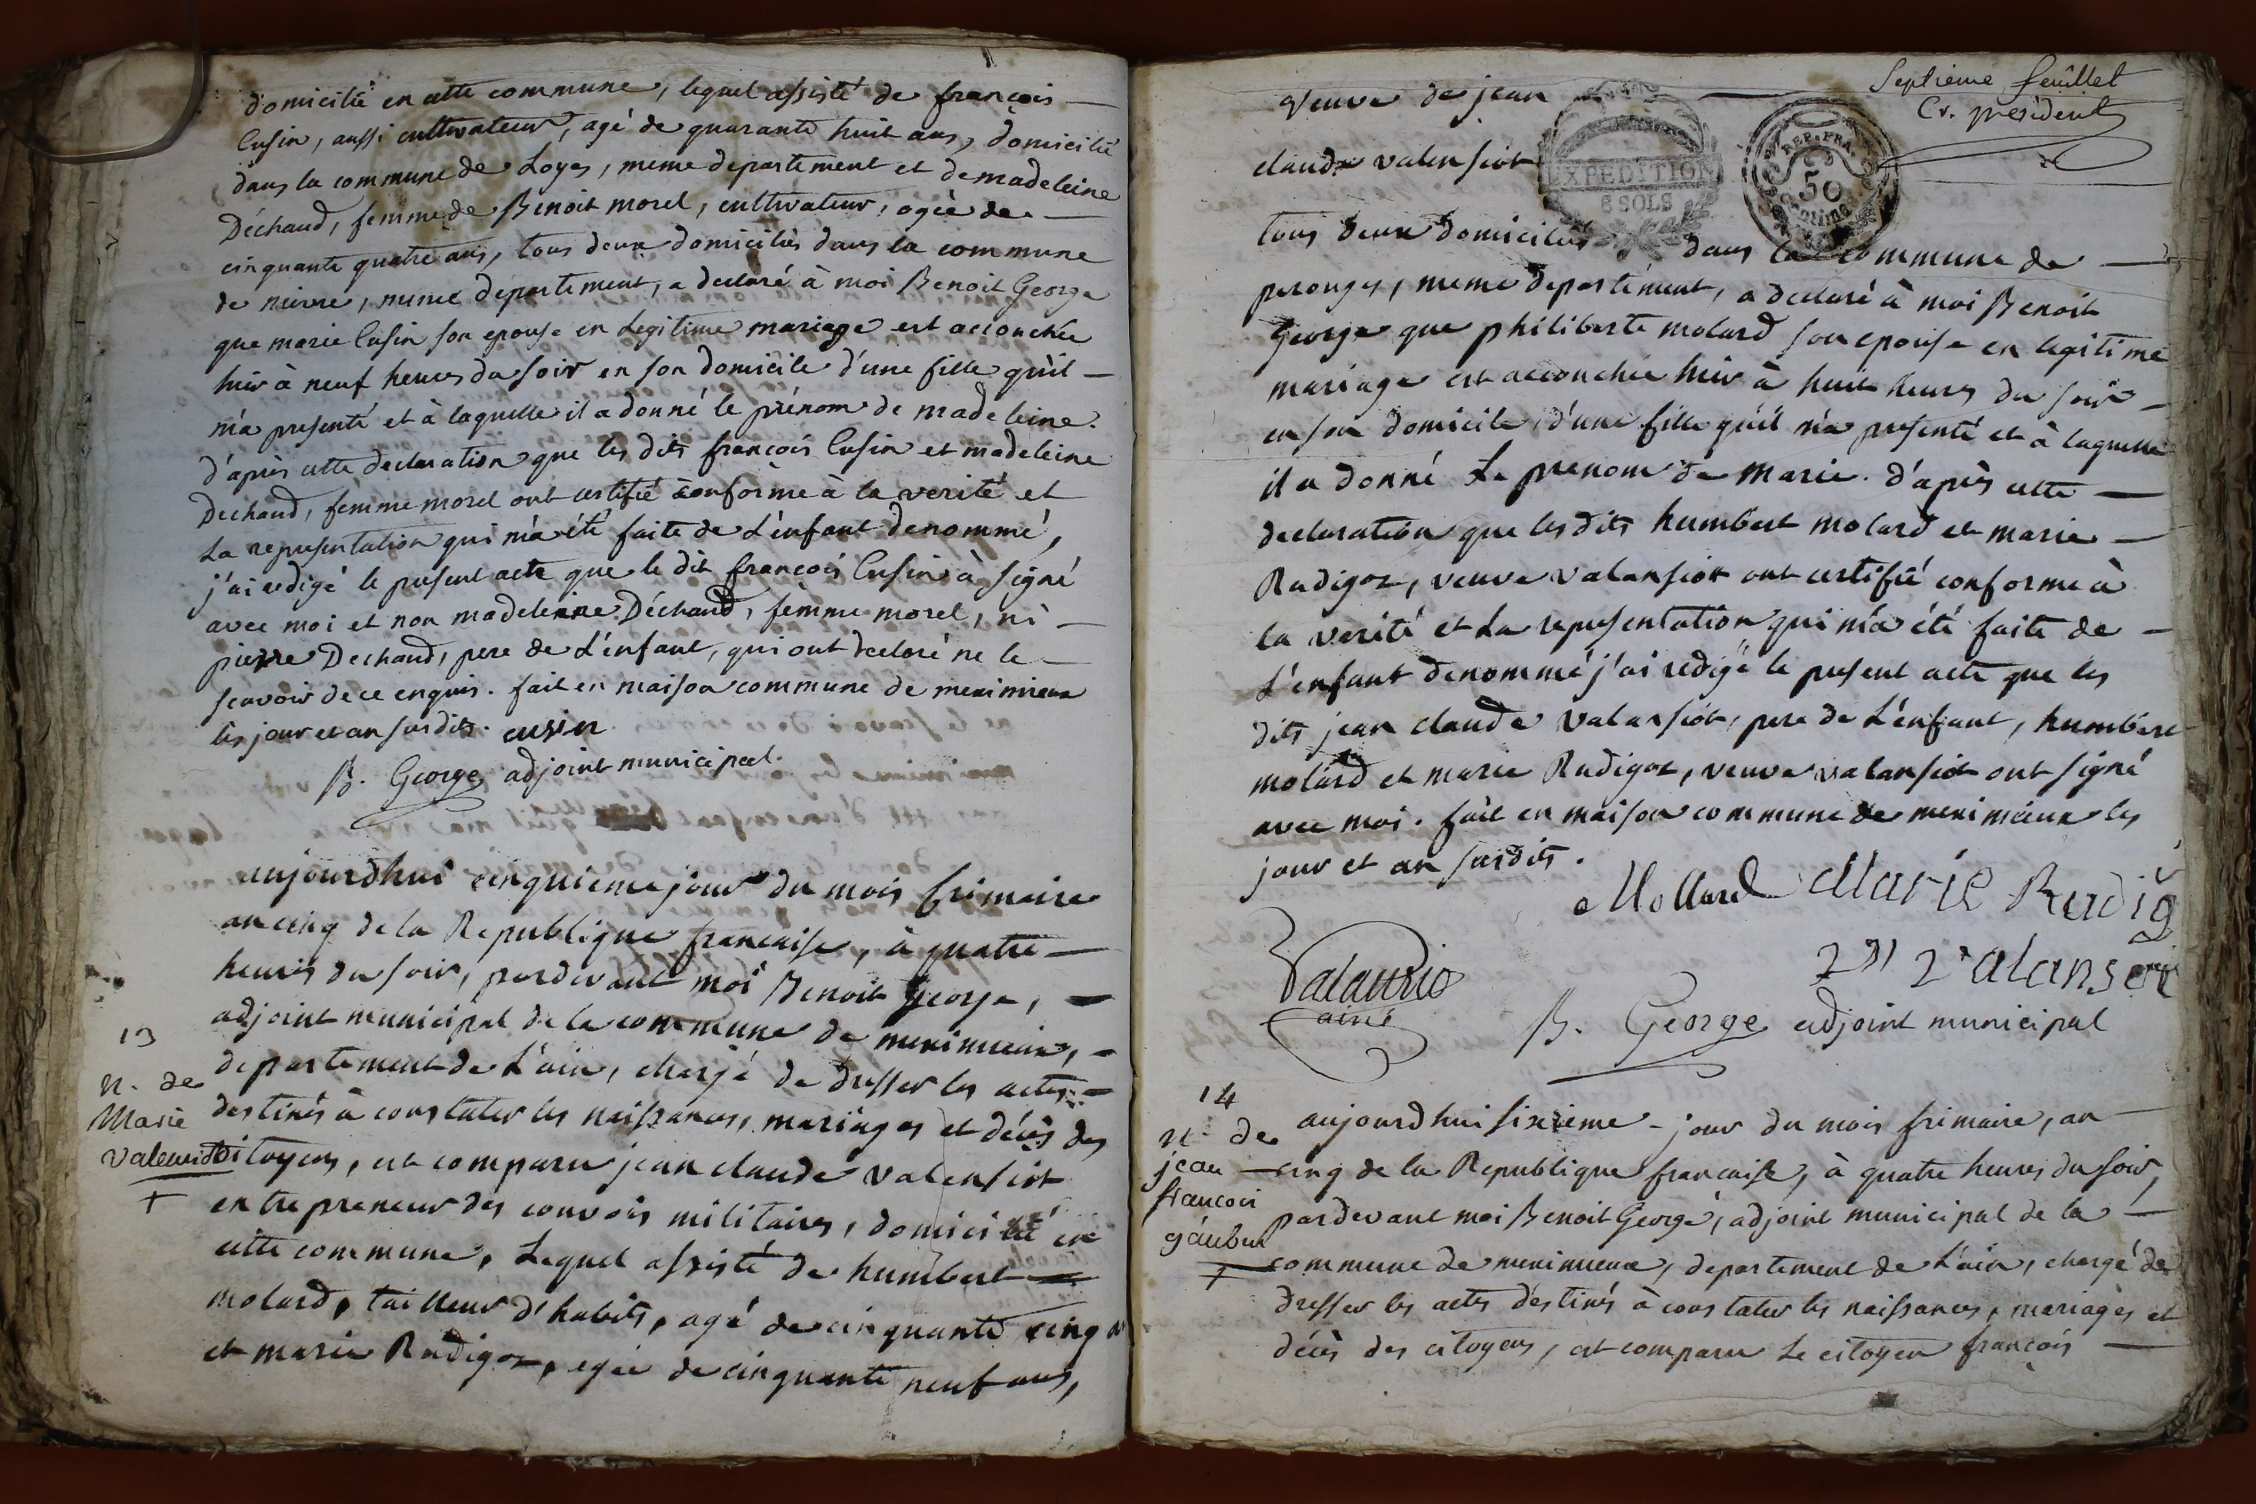 domicilié en cette commune, lequel assisté de françois
Cusin, aussi cultivateur, agé de quarante huit ans, domicilié
dans la commune de Loyes, meme departement et de madeleine
Déchaud, femme de Benoit morel, cultivateur, agée de
cinquante quatre ans, tous deux domiciliés dans la commune
de meme departement, a declaré à moi Benoit George
que marie Cusin son epouse en Legitime mariage est accouchée
hier à neuf heures du soir en son domicile d'une fille qu'il
m'a presenté et à laquelle il a donné le prénom de madeleine.
d'après cette declaration que les dits françois Cusin et madeleine
Dechaud, femme morel ont certifié conforme à la verité et
La representation qui m'a été faite de L'enfant denommé,
j'ai redigé le present acte que le dit françois Cusin à signé
avec moi et non madeleine Déchaud, femme morel, ni
pierre Dechaud, pere de L'enfant, qui ont declaré ne le
scavoir de ce enquis. fait en maison commune de meximieux
les jour et an susdits. cusin
B. George, adjoint municipal.
aujourdhui cinquieme jour du mois frimaire
an cinq de la Republique francaise, à quatre
heures du soir, pardevant moi Benoit George,
adjoint municipal de la commune de meximieux,
13
departement de L'ain, chargé de dresser les actes
n. de
Marie
destinés à constater les naissances, mariages et décès des
valensiot
citoyens, est comparu jean claude valensiot
+
entrepreneur des convois militaires, domicilié en
cette commune, Lequel assisté de humbert
molard, tailleur d'habits, agé de cinquante cinq
et marie Rudigoz, agée de cinquante neuf ans,
Septieme feuillet
Cr. président
veuve de jean
claude valensiot
EXPEDITION
6 SOLS
REP. FRA.
50
centimes
tous deux domiciliés dans la commune de
perouges, meme departement, a declaré à moi Benoit
George que philiberte molard son epouse en legitime
mariage est accouchée hier à huit heures du soir
en son domicile d'une fille qu'il m'a presenté et à laquelle
il a donné Le prenom de Marie. d'après cette
declaration que les dits humbert molard et marie
Rudigoz, veuve valansiot ont certifié conforme à
la verité et La representation qui m'a été faite de
L'enfant denommé j'ai redigé le present acte que les
dits jean claude valansiot, pere de L'enfant, humbert
molard et marie Rudigoz, veuve valansiot ont signé
avec moi. fait en maison commune de meximieux les
jour et an susdits.
Mollard Marie Rudig
alanson
ainé
B. George adjoint municipal
14
n. de
jean
francoi
gáubur
+
aujourdhui sixieme jour du mois frimaire, an
cinq de la Republique francaise, à quatre heures du soir,
pardevant moi Benoit George, adjoint municipal de la
commune de meximieux, departement de L'ain, chargé de
dresser les actes destinés à constater les naissances, mariages et
décès des citoyens, est comparu Le citoyen françois